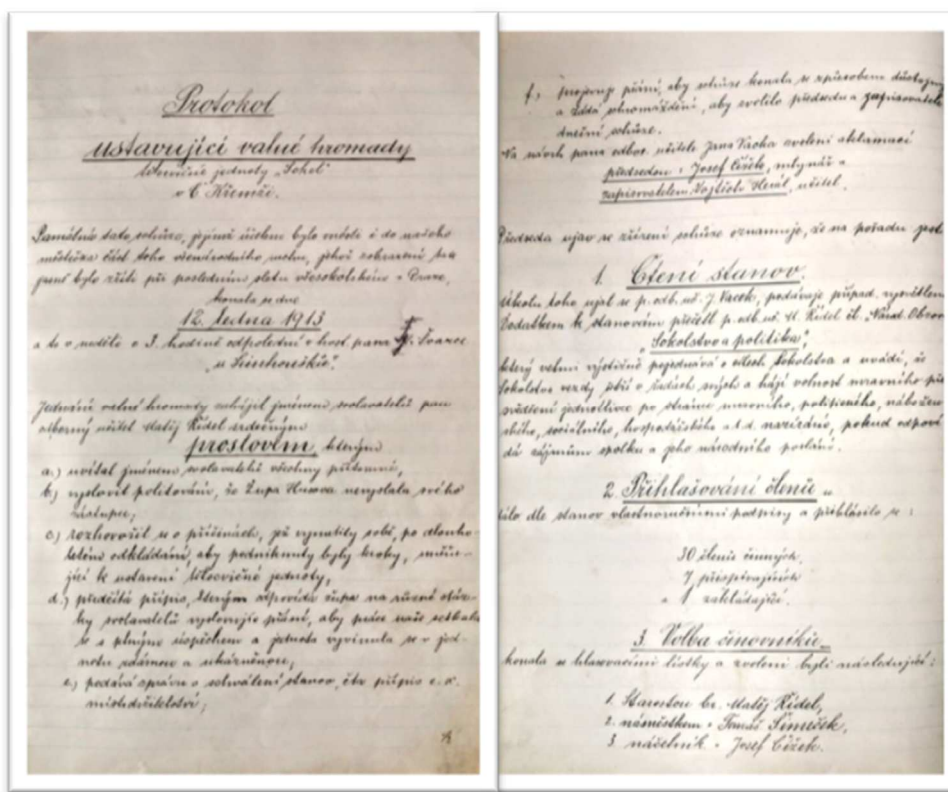 Protokol
ustavující valné hromady
tělocvičné jednoty „Sokol"
v Č. Křemži.
Památná tato schůze, jejímž účelem bylo uvésti i do našeho
městečka část toho všenárodního ruchu, jehož zobrazení
bylo zříti při posledním sletu všesokolském v Praze,
konala se dne
12. ledna 1913
a to v neděli o 3. hodině odpolední v host. pana Švarce
„u
Jednání valné hromady zahájil jménem svolavatelů pan
odborný učitel Matěj Řídel srdečným
proslovem, kterým
a.) uvítal jménem svolavatelů všechny přítomné,
b.) vyslovil politování, že župa Husova nevyslala svého
zástupce,
c.) rozhovořil se o příčinách, jež vynutily sobě, po dlouho-
letém odkládání, aby podniknuty byly kroky, směřu-
jící k ustavení tělocvičné jednoty,
d.) předčítá přípis, kterým odpovídá župa na různé otáz-
ky svolavatelů vyslovujíc přání, aby práce naše setkala
se s plným úspěchem a jednota vyvinula se v jed-
notu zdárnou a ukázněnou,
e.) podává zprávu o schválení stanov, čte přípis c. k.
místodržitelství,
f.) projevuje přání, aby schůze konala se způsobem důstojným
a žádá shromáždění, aby zvolilo předsedu a zapisovatele
dnešní schůze.
Na návrh pana odbor. učitele Jana Vacka zvoleni aklamací
předsedou: Josef Čížek, mlynář a
zapisovatelem Vojtěch učitel.
Předseda ujav se řízení schůze oznamuje, že na pořadu jest
1. Čtení stanov.
Úkolu toho ujal se p. odb. uč. J. Vacek, podávaje případ. vysvětlení.
Dodatkem k stanovám přečetl p. odb. uč. M. Řídel čl. „Národ. Obrov
„Sokolstvo a politika",
který velmi výstižně pojednává o cílech Sokolstva a uvádí, že
Sokolstvo vždy ctí v řadách svých a hájí volnost mravního pře
svědčení jednotlivce po stránce mravního, politického, nábožen
ského, sociálního, hospodářského a t. d. nazírání, pokud odpoví
dá zájmům spolku a jeho národního poslání.
2. Přihlašování členů
dle stanov vlastnoručními podpisy a přihlásilo se:
30 členů činných,
7 přispívajících
a 1 zakládající.
3. Volba činovníků
konala se hlasovacími lístky a zvoleni byli následující:
1. Starostou br. Matěj Řídel,
2. náměstkem " Tomáš Šimeček,
3. náčelník " Josef Čížek.